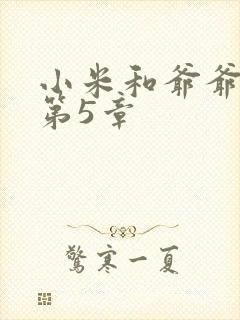 小米和爷爷
第5章
驚寒一夏